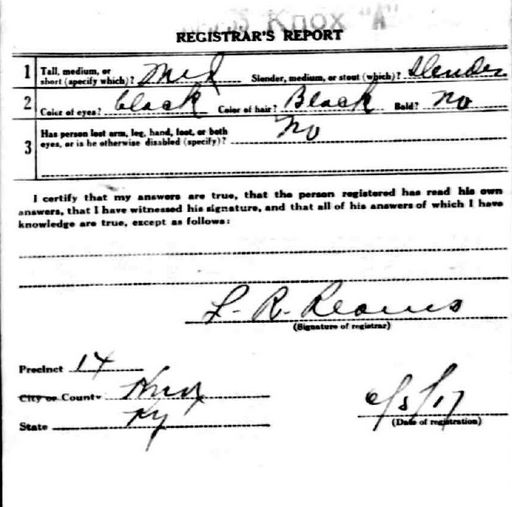 Knox "A"
REGISTRAR'S REPORT
1 Tall, medium, or short (specify which)? Med Slender, medium, or stout (which)? Slender
2 Color of eyes? black Color of hair? Black Bald? No
3 Has person lost arm, leg, hand, foot, or both
eyes, or is he otherwise disabled (specify)? No
I certify that my answers are true, that the person registered has read his own
answers, that I have witnessed his signature, and that all of his answers of which I have
knowledge are true, except as follows:
L. R. Reams
(Signature of registrar)
Precinct 14
City or County Knox
State Ky
6/5/17
(Date of registration)